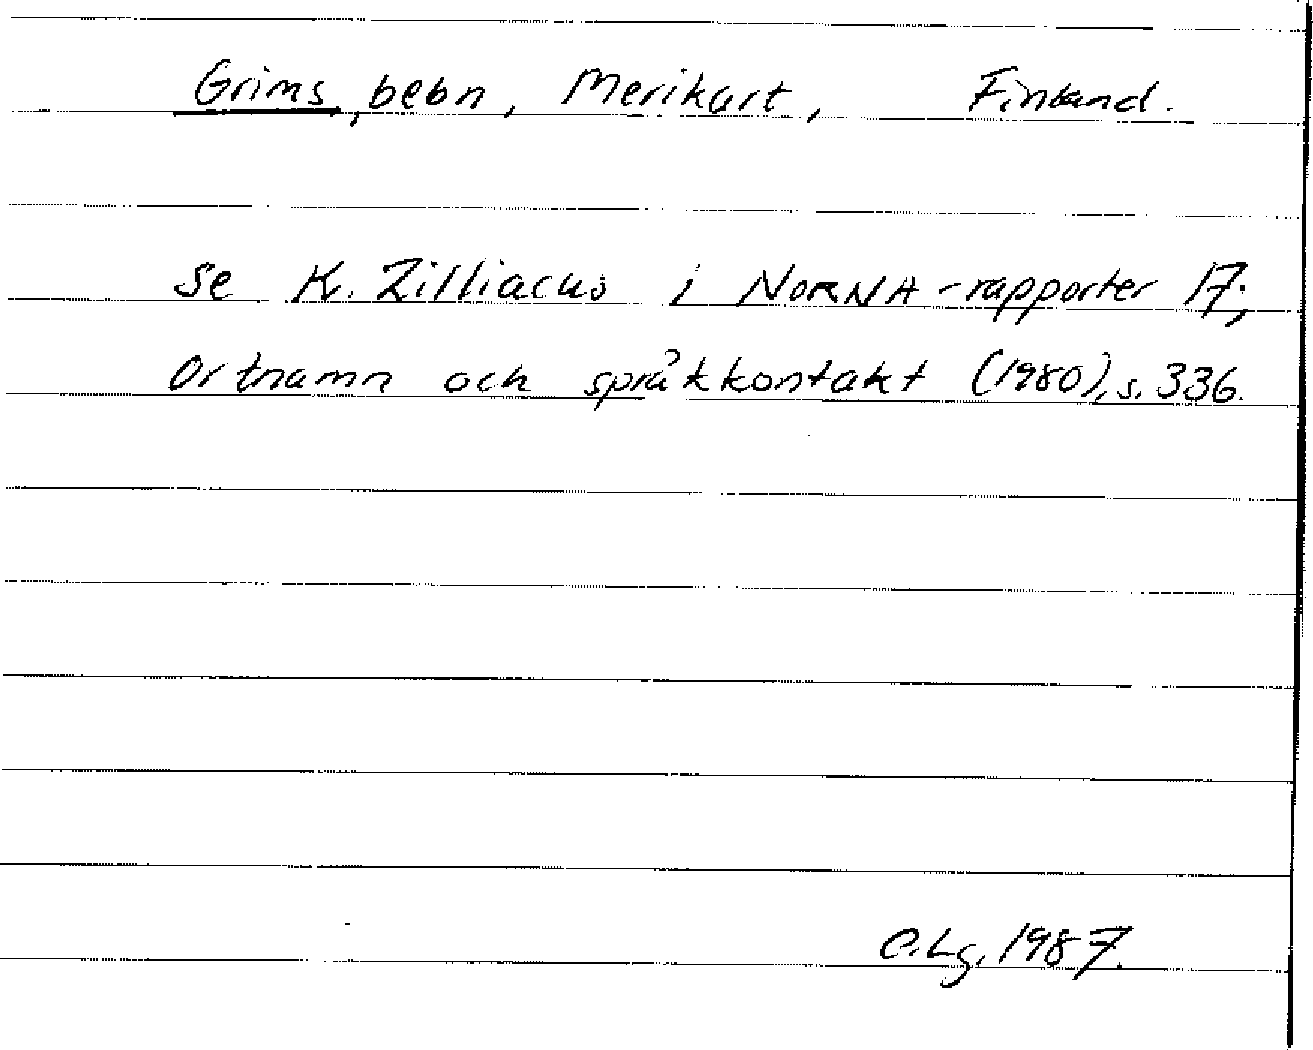 Grims, bebn, Merikart, Finland.
Se K. Zilliacus i NORNA-rapporter 17;
Ortnamn och språkkontakt (1980), s. 336.
C.Lg. 1987.